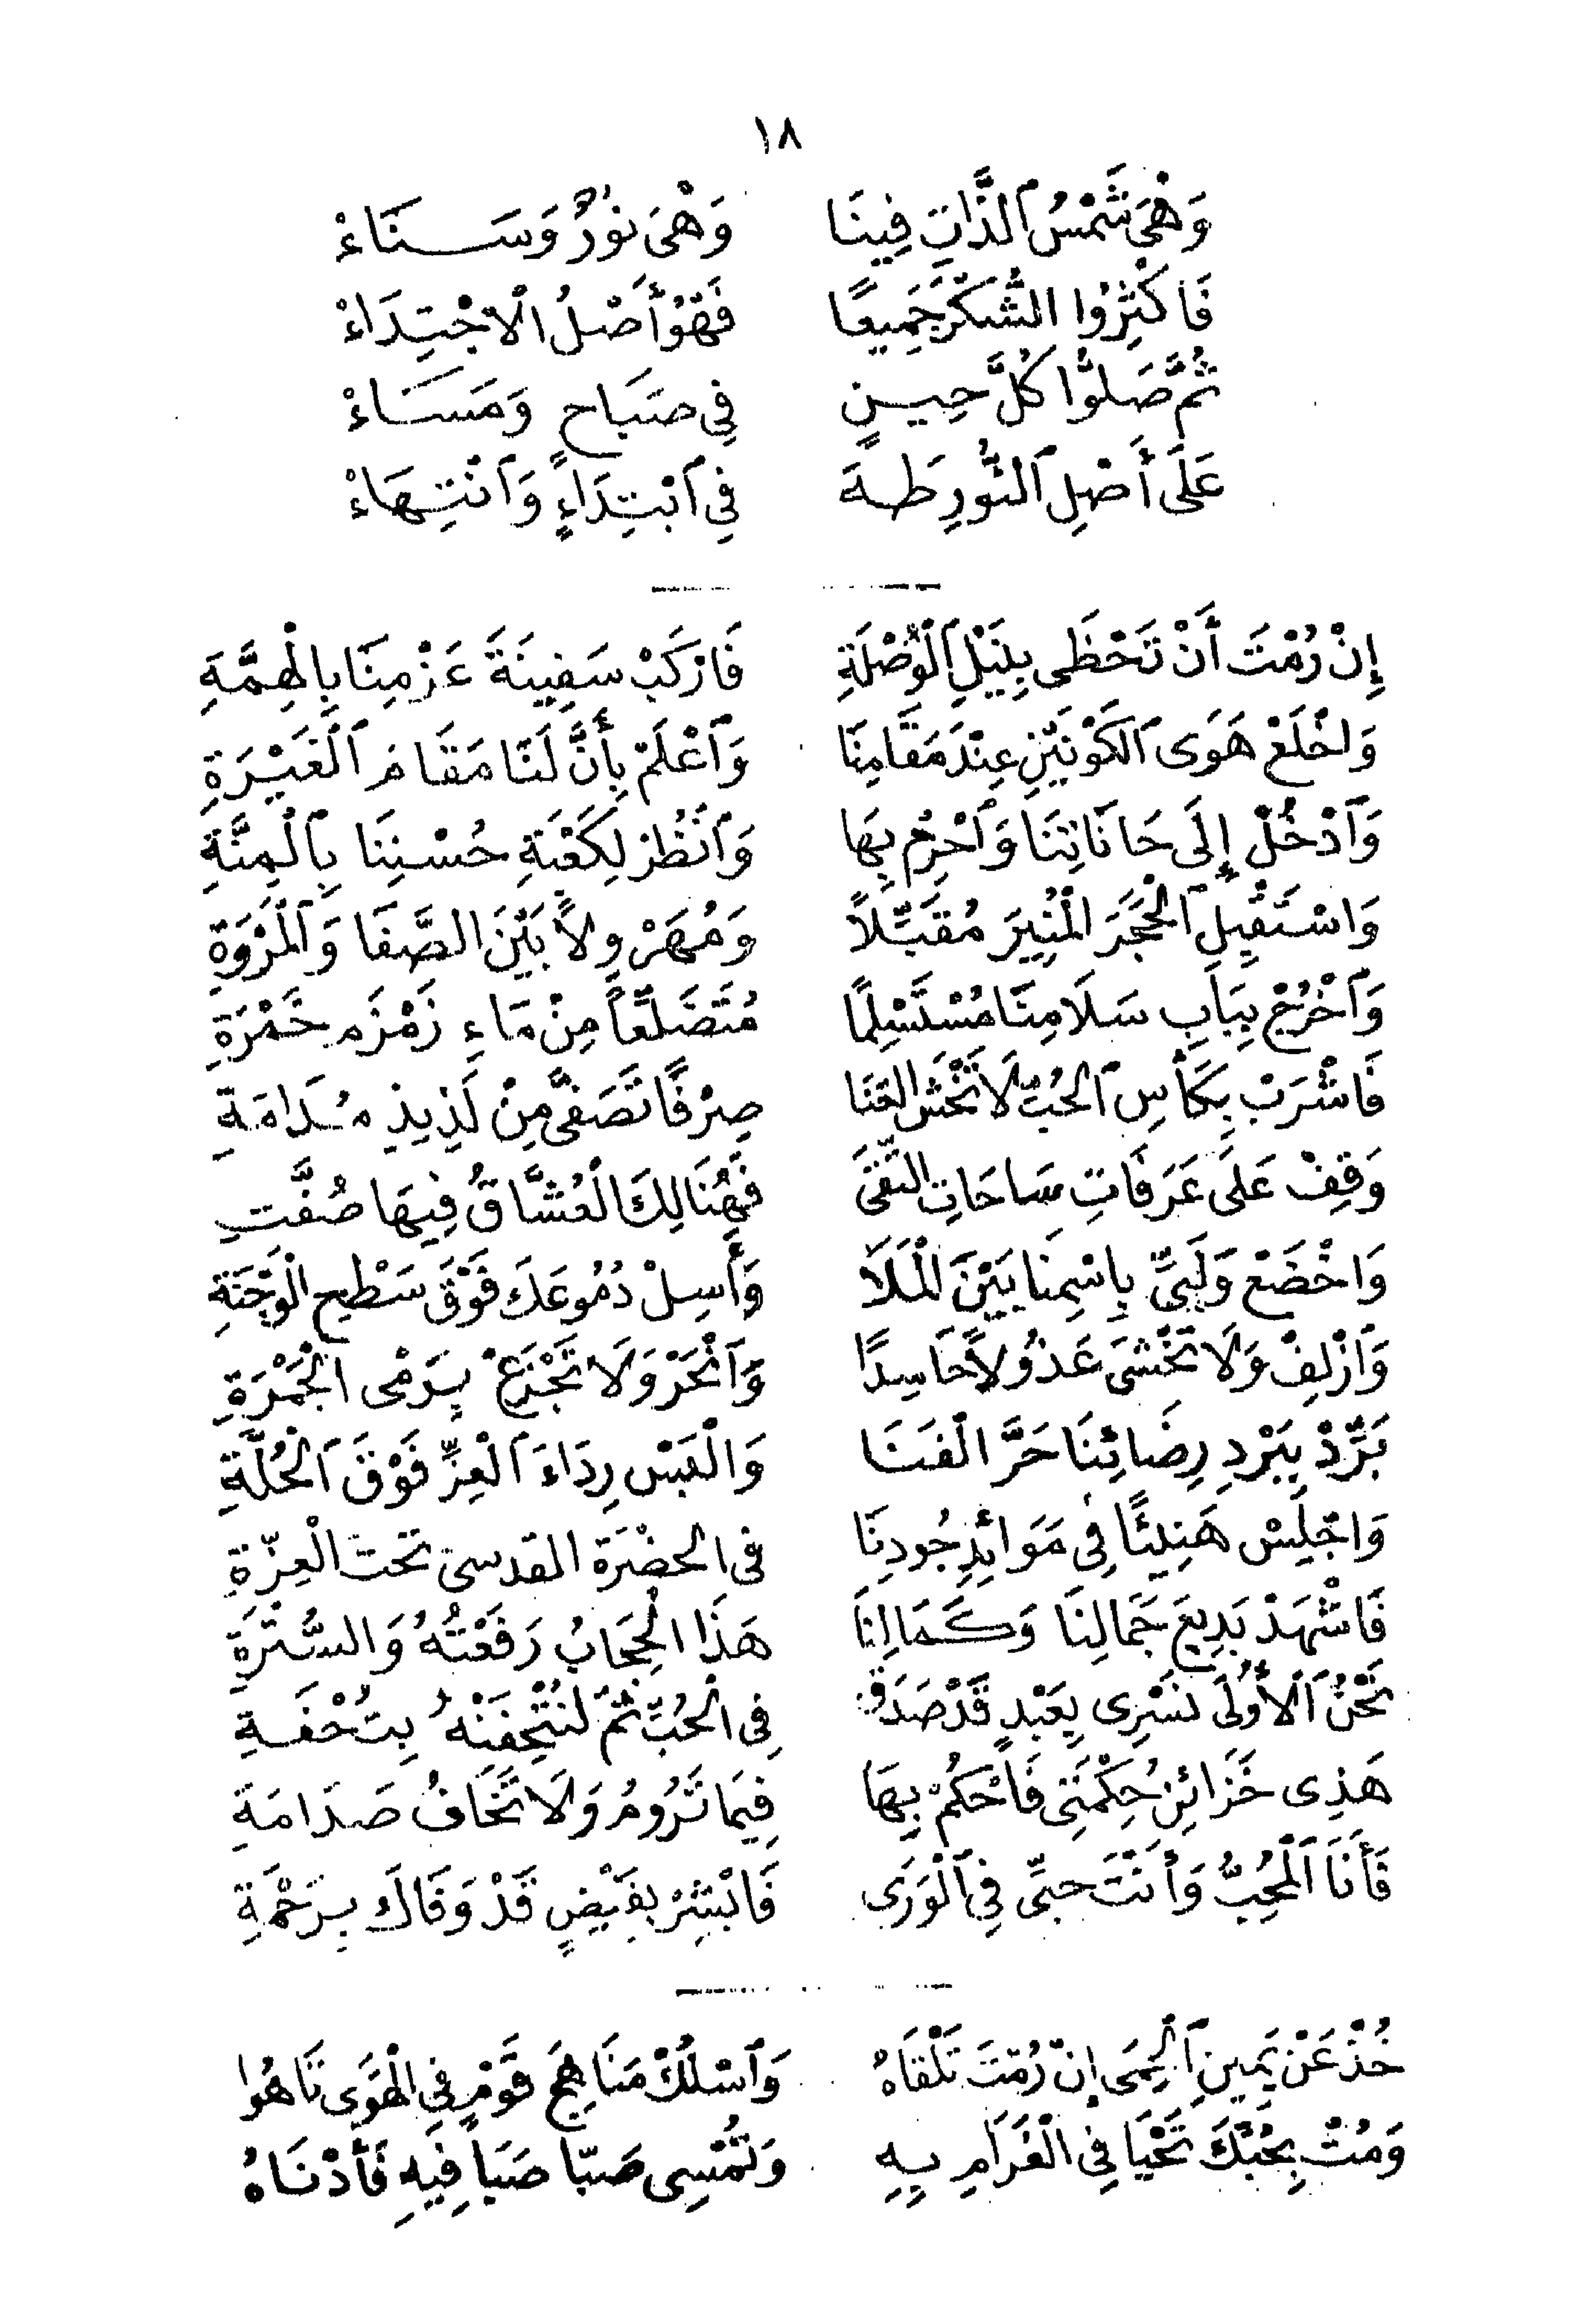 ١٨
وَهْيَ شَمْسُ ٱلذَّاتِ فِينَا وَهْيَ نُورٌ وَسَنَاءْ
فَاكْثِرُوا الشُّكْرَ جَمِيعًا فَهْوَ أَصْلُ الْاجْتِدَاءْ
ثُمَّ صَلُّوا كُلَّ حِينٍ فِي صَبَاحٍ وَمَسَاءْ
عَلَى أَصْلِ ٱلنُّورِ طَهَ فِي ٱبْتِدَاءٍ وَٱنْتِهَاءْ
إِنْ رُمْتَ أَنْ تَحْظَى بِنَيْلِ ٱلْوُصْلَةِ فَارْكَبْ سَفِينَةَ عَزْمِنَا بِالْهِمَّةِ
وَاخْلَعْ هَوَى ٱلْكَوْنَيْنِ عِنْدَ مَقَامِنَا وَٱعْلَمْ بِأَنَّ لَنَا مَقَامَ ٱلْغَيْرَةِ
وَٱدْخُلْ إِلَى حَانَاتِنَا وَٱحْرِمْ بِهَا وَٱنْظُرْ لِكَعْبَةِ حُسْنِنَا بِٱلْمِنَّةِ
وَاسْتَقْبِلِ ٱلْحَجَرَ الْمُنِيرَ مُقَبِّلاً وَمُهَرْوِلاً بَيْنَ الصَّفَا وَٱلْمَرْوَةِ
وَٱخْرُجْ بِبَابِ سَلَامِنَا مُسْتَسْلِمًا مُتَضَلِّعاً مِنْ مَاءِ زَمْزَمِ خَمْرَةِ
فَاشْرَبْ بِكَأْسِ ٱلْحُبِّ لَا تَخْشَ الْفَنَا صِرْفًا تَصَفَّى مِنْ لَذِيذِ مُدَامَةِ
وَقِفْ عَلَى عَرَفَاتِ سَاحَاتِ التُّقَى فَهُنَالِكَ الْعُشَّاقُ فِيهَا صُفَّتِ
وَاخْضَعْ وَلَبِّي بِاسْمِنَا بَيْنَ الْمَلَا وَأَسِلْ دُمُوعَكَ فَوْقَ سَطْحِ الْوَجْنَةِ
وَٱزْلِفْ وَلَا تَخْشَى عَذُولاً حَاسِدًا وَٱنْحَرْ وَلَا تَجْزَعْ بِرَمْيِ الْجَمْرَةِ
بَرِّدْ بِبَرْدِ رِضَائِنَا حَرَّ الْفَنَا وَالْبَسْ رِدَاءَ ٱلْعِزِّ فَوْقَ ٱلْحُلَّةِ
وَاجْلِسْ هَنِيئًا فِي مَوَائِدِ جُودِنَا فى الحضْرَة القدسى تحت الْعِزَّةِ
فَاشْهَدْ بَدِيعَ جَمَالِنَا وَكَمَالِنَا هَذَا الْحِجَابُ رَفَعْتُهُ وَالسُّتْرَةِ
نَحْنُ ٱلْأُولَى نَسْرِى بِعَبْدٍ قَدْ صَدَقْ فِى الْحُبِّ ثُمَّ لَنُتْحِفَنْهُ بِتُحْفَةِ
هَذِى خَزَائِنُ حِكْمَتِى فَاحْكُمْ بِهَا فِيمَا تَرُومُ وَلَا تَخَافُ صَدَامَةِ
فَأَنَا ٱلْمُحِبُّ وَأَنْتَ حِبِّى فِي ٱلْوَرَى فَابْشِرْ بِفَيْضٍ قَدْ وَفَاكَ بِرَحْمَةِ
خُذْ عَنْ يَمِينِ ٱلْحِمَى إِنْ رُمْتَ تَلْقَاهُ وَٱسْلُكْ مَنَاهِجَ قَوْمٍ فِي الْهَوَى تَاهُوا
وَمُتْ بِحُبِّكَ تَحْيَا فِي الْغَرَامِ بِهِ وَتُمْسِى صَبّا صَبَا فِيهِ فَأَدْنَاهُ